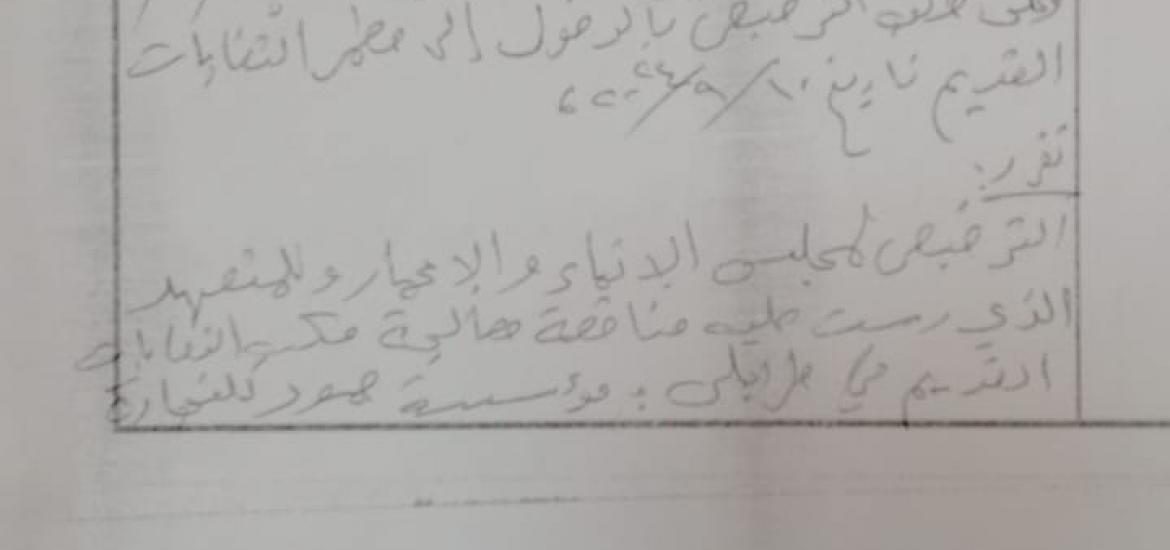 وعلى طلب الترخيص بالدخول إلى مطمر النفايات
القديم تاريخ ١٠/٩/٢٠٢٤،
تقرر:
الترخيص لمجلس الانماء والاعمار وللمتعهد
الذي رست عليه مناقصة معالجة مكب النفايات
القديم في طرابلس: مؤسسة حمود للتجارة